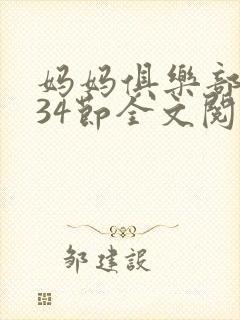 妈妈俱樂部
34節全文閱
邹建設